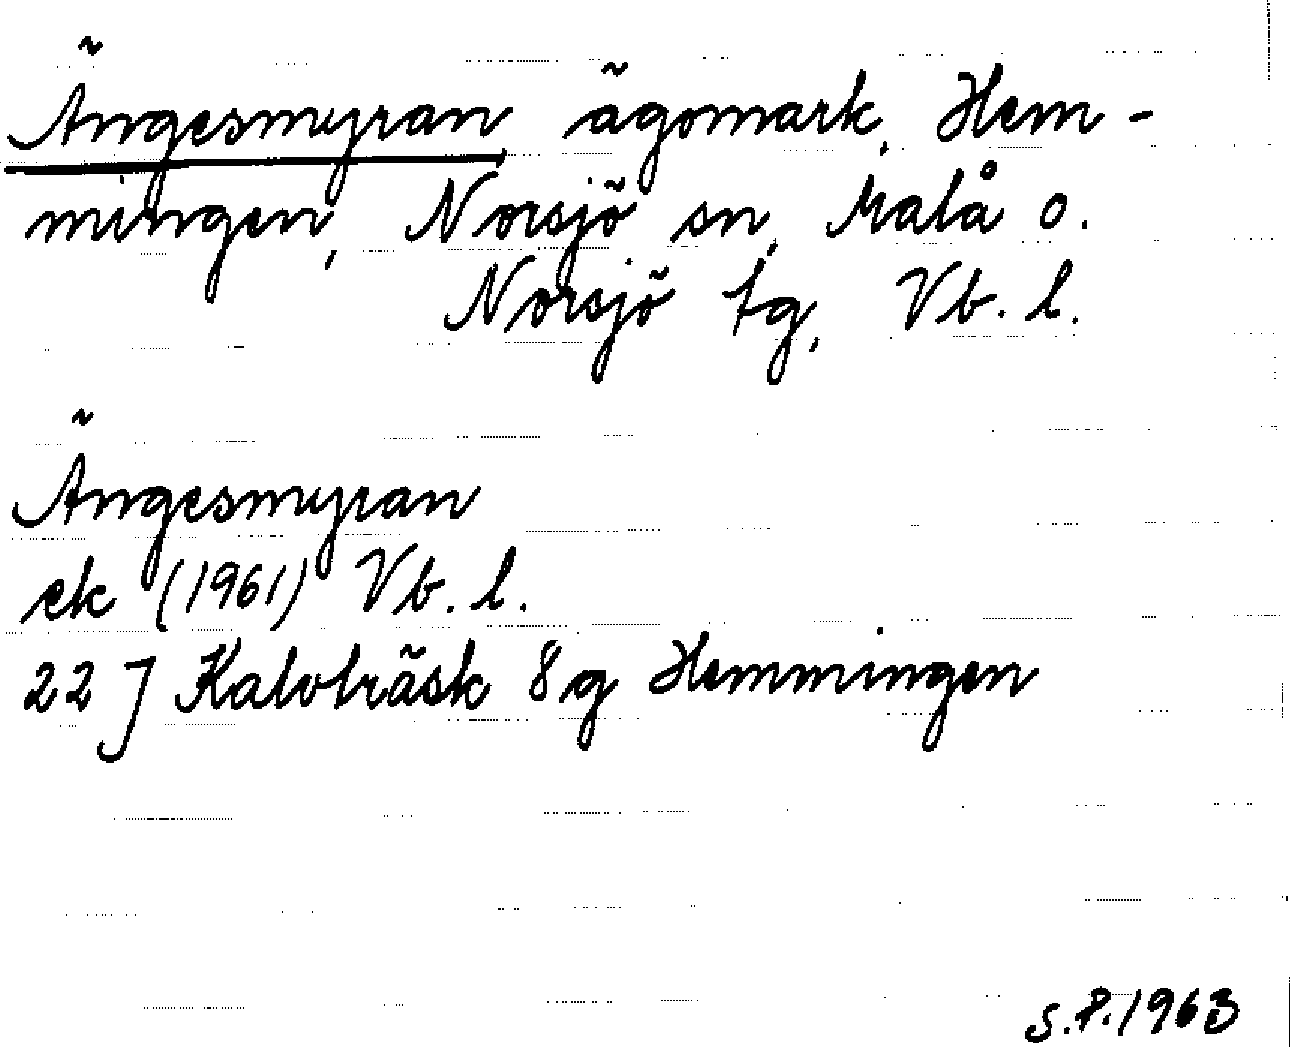 Ängesmyran ägomark, Hem-
mingen, Norsjö sn, Malå o.
Norsjö tg, Vb. l.
Ängesmyran
ek (1961) Vb. l.
22 J Kalvträsk 8 g Hemmingen
S.P. 1963